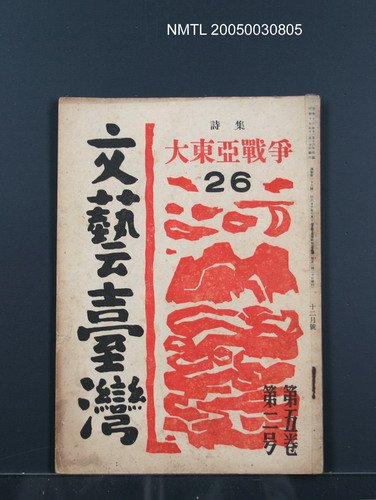 NMTL 20050030805
詩集
大東亞戰爭
26
文藝臺灣
第五卷
第二号
十二月號